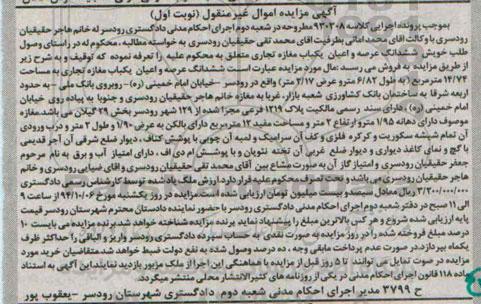 آگهی مزایده اموال غیرمنقول (نوبت اول)
بموجب پرونده اجرایی کلاسه ۹۳۰۳۰۸ مطروحه در شعبه دوم اجرای احکام مدنی دادگستری رودسر له خانم هاجر حقیقیان
رودسری با وکالت اقای محمد امانی بطرفیت اقای محمد تقی حقیقیان رودسری به خواسته مطالبه، محکوم له در راستای وصول
طلب خویش ششدانگ عرصه و اعیان یکباب مغازه تجاری متعلق به محکوم علیه را تعرفه نموده که توقیف و به شرح زیر
از طریق مزایده به فروش می رسد. مال مورد مزایده عبارت است ششدانگ عرصه و اعیان یکباب مغازه تجاری به مساحت
۱۴/۷۴ مترمربع (به طول ۶/۸۲ مترو عرض ۲/۱۷ متر) واقع در رودسر – خیابان امام خمینی (ره) – روبروی بانک ملی – به حدود
اربعه شرقا به ساختمان بانک کشاورزی شعبه بازار، غربا به مغازه خانم هاجر حقیقیان رودسری و جنوبا به پیاده روی خیابان
امام خمینی (ره) – دارای سند رسمی مالکیت پلاک ۱۲۱۹ فرعی مجزا از ۱۲۹ شهر رودسر بخش ۲۹ گیلان می باشد. مغازه
موصوف دارای دهانه ۱/۹۵ متر و ارتفاع ۲ متر و مساحت مفید ۱۲ مترمربع دارای بالکن به عرض ۱/۹۰ و طول ۲ متر و درب ورودی
آن تمام شیشه سکوریت و کرکره فلزی و کف آن سرامیک و لمبه آن چوبی با پوشش کناف، دیوار ضلع شرقی آن آجر قدیمی
با گچ و نمای کاغذ دیواری و دیوار ضلع غربی آن تخته نئوپان و با پوشش ام دی اف، دارای امتیاز آب و برق به نام مرحوم
جعفر حقیقیان رودسری و امتیاز گاز آن به صورت مشاع بین آقای محمد تقی حقیقیان رودسری و اقای ضیایی رودسری و خانم
هاجر حقیقیان رودسری می باشد و تحت تصرف محکوم علیه قرار دارد ارزش ملک یاد شده توسط کارشناس رسمی دادگستری
۳/۲۰۰/۰۰۰/۰۰۰ ریال معادل سیصد و بیست میلیون تومان ارزیابی شده است مزایده در روز یکشنبه مورخ ۹۴/۱۰/۰۶ از ساعت ۹
الی ۱۱ صبح در دفتر شعبه دوم اجرای احکام مدنی دادگستری رودسر با حضور نماینده دادستان محترم شهرستان رودسر قیمت
پایه ارزیابی شده شروع و هر کس بالاترین مبلغ را پیشنهاد نماید برنده مزایده شناخته خواهد شد. برنده مزایده می بایست ۱۰
درصد مبلغ فروخته شده را در روز مزایده به صورت نقدی به حساب سپرده دادگستری رودسر واریز و الباقی را حداکثر ظرف
یکماه بپردازد. در صورت عدم پرداخت مابقی وجه، ده درصد وصول شده به نفع دولت ضبط خواهد شد. متقاضیان خرید مورد
مزایده در صورت تمایل می توانند تا ۵ روز قبل از مزایده با هماهنگی این اجرا از ملک مزبور بازدید نمایند. این آگهی به استناد
ماده ۱۱۸ قانون اجرای احکام مدنی در یکی از روزنامه های کثیرالانتشار محلی منتشر میگردد.
ح ۳۷۹۹ مدیر اجرای احکام مدنی شعبه دوم دادگستری شهرستان رودسر – یعقوب پور